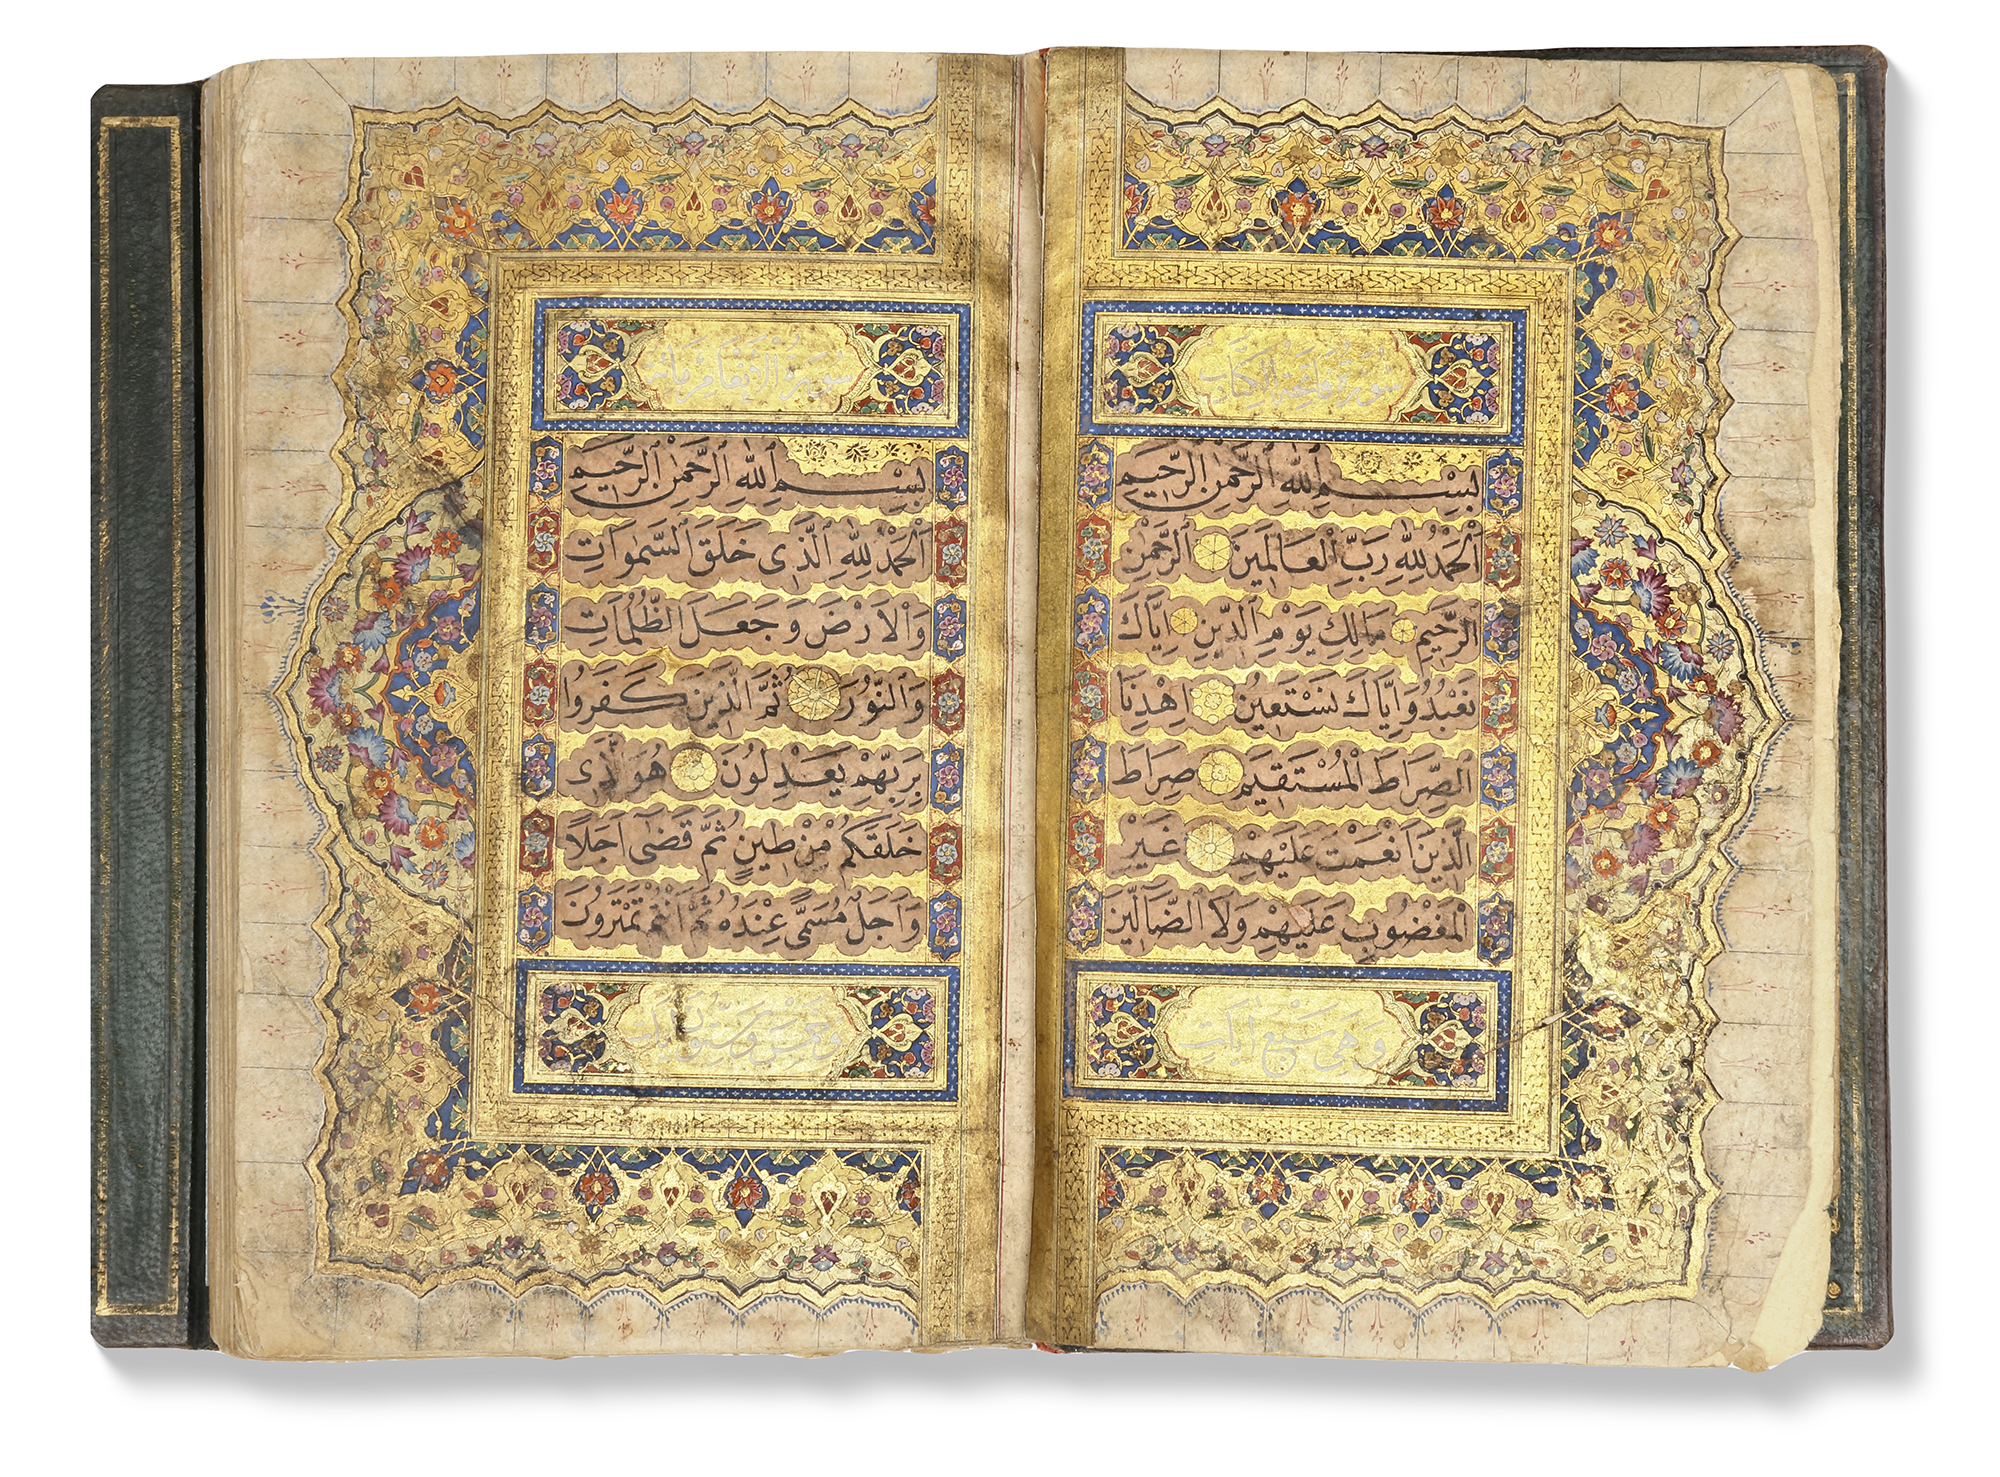 سورة فاتحة الكتاب
بِسْمِ ٱللهِ ٱلرَّحْمٰنِ ٱلرَّحِيمِ
اَلْحَمْدُ لِلّٰهِ رَبِّ الْعَالَمِينَ الرَّحْمٰنِ
الرَّحِيمِ مَالِكِ يَوْمِ الدِّينِ اِيَّاكَ
نَعْبُدُ وَاِيَّاكَ نَسْتَعِينُ اِهْدِنَا
الصِّرَاطَ الْمُسْتَقِيمَ صِرَاطَ
الَّذِينَ اَنْعَمْتَ عَلَيْهِمْ غَيْرِ
الْمَغْضُوبِ عَلَيْهِمْ وَلَا الضَّالِّينَ
وهي سبع آيات
سورة الأنعام مائة
بِسْمِ ٱللهِ ٱلرَّحْمٰنِ ٱلرَّحِيمِ
اَلْحَمْدُ لِلّٰهِ الَّذِى خَلَقَ السَّمٰوَاتِ
وَالْاَرْضَ وَجَعَلَ الظُّلُمَاتِ
وَالنُّورَ ثُمَّ الَّذِينَ كَفَرُوا
بِرَبِّهِمْ يَعْدِلُونَ هُوَ الَّذِى
خَلَقَكُمْ مِنْ طِينٍ ثُمَّ قَضٰى اَجَلًا
وَاَجَلٌ مُسَمًّى عِنْدَهُ ثُمَّ اَنْتُمْ تَمْتَرُونَ
وخمس وستون